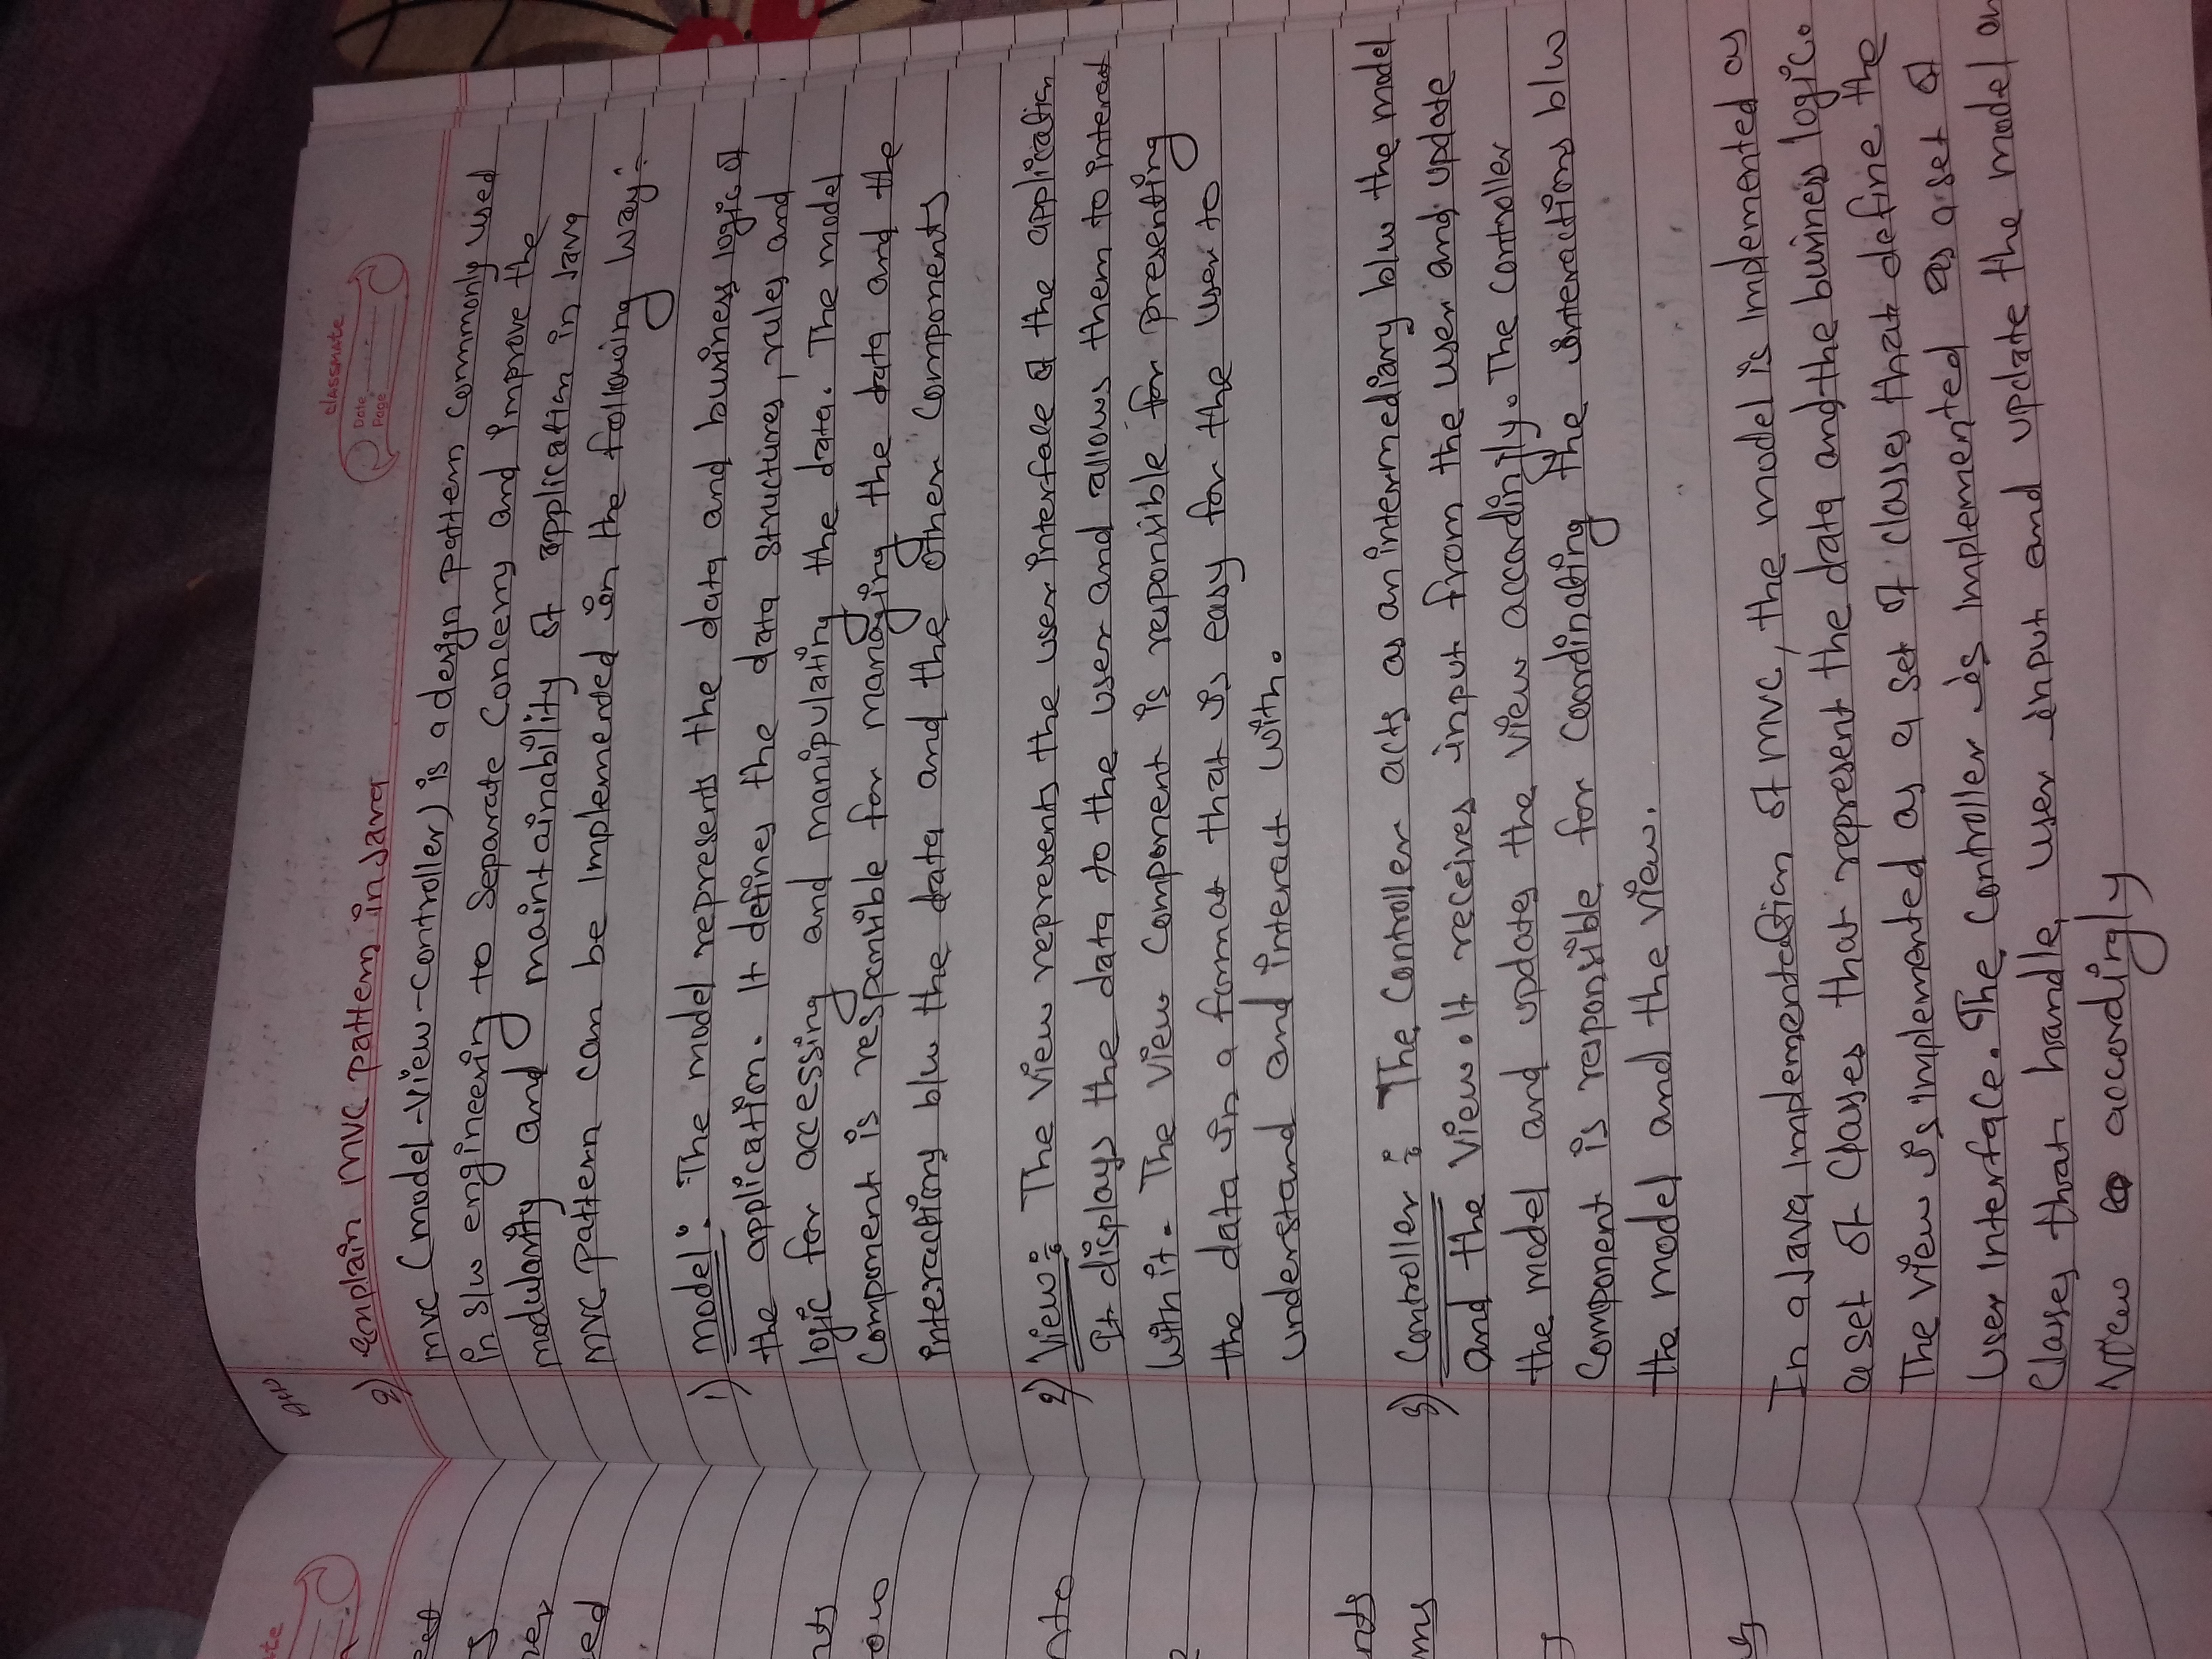 classmate
Date
Page
2) Explain MVC pattern in Java
MVC (Model-View-Controller) is a design pattern commonly used
in s/w engineering to separate concerns and improve the
modularity and maintainability of application in Java
MVC pattern can be implemented in the following way:-
1) Model: The model represents the data and business logic of
the application. It defines the data structures, rules and
logic for accessing and manipulating the data. The model
component is responsible for managing the data and the
interactions b/w the data and the other components
2) View: The view represents the user interface of the application
It displays the data to the user and allows them to interact
with it. The view component is responsible for presenting
the data in a format that is easy for the user to
understand and interact with.
3) Controller: The Controller acts as an intermediary b/w the model
and the view. It receives input from the user and update
the model and updates the view accordingly. The controller
component is responsible for coordinating the interactions b/w
the model and the view.
In a Java implementation of MVC, the model is implemented as
a set of classes that represent the data and the business logic.
The view is implemented as a set of classes that define the
User interface. The controller is implemented as a set of
classes that handle user input and update the model an
view accordingly
ate
ed
nts
nto
nts
ms